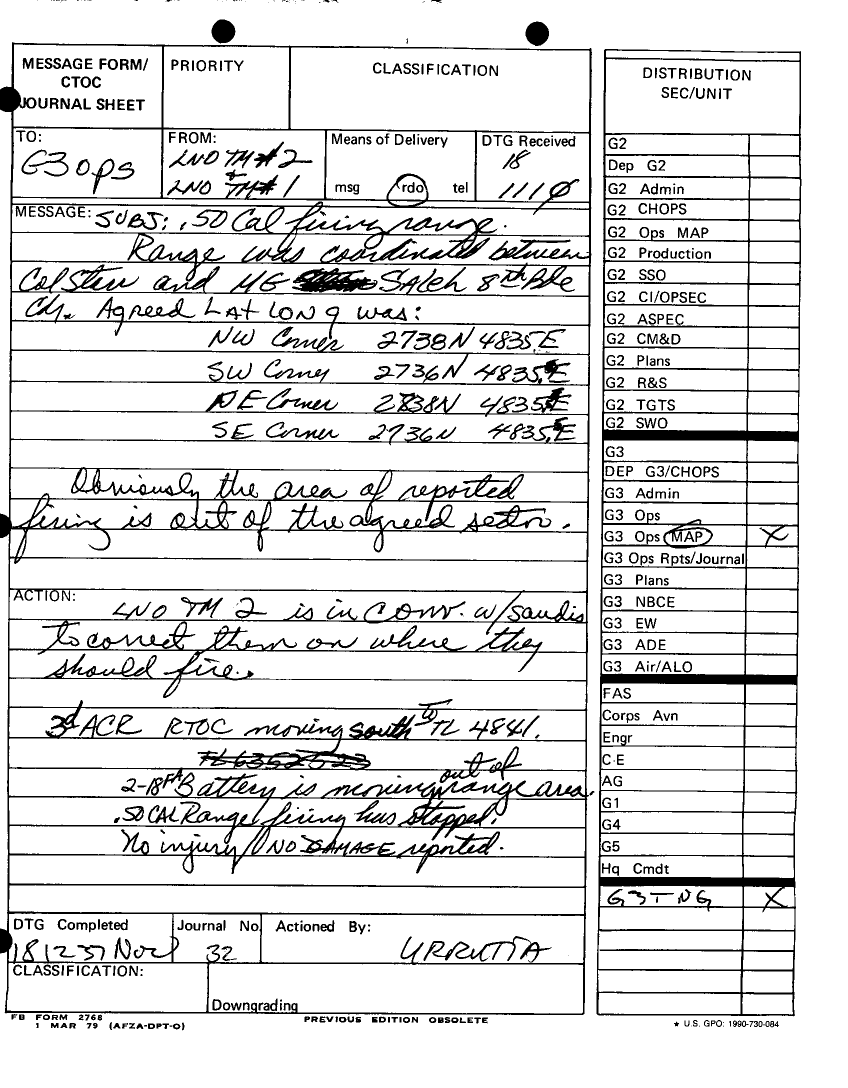 MESSAGE FORM/
CTOC
JOURNAL SHEET
PRIORITY
CLASSIFICATION
TO:
G3 ops
FROM:
LNO TM#2
+
LNO TM#1
Means of Delivery
msg rdo tel
DTG Received
18
1110
MESSAGE: SUBJ: .50 Cal firing range.
Range was coordinated between
Col Sten and MG Saleh 8th Bde
Cdr. Agreed LAT LONG was:
NW Corner 2738N 4835E
SW Corner 2736N 4835.E
NE Corner 2838N 4835E
SE Corner 2736N 4835.E
Obviously the area of reported
firing is out of the agreed sector.
ACTION:
LNO TM 2 is in conv. w/Saudis
to correct them on where they
should fire.
3d ACR RTOC moving south to TL 4841.
TL 63525 23
2-18 FA Battery is moving out of range area.
.50 CAL Range firing has stopped.
No injury/NO DAMAGE reported.
DTG Completed
181237 Nov
Journal No.
32
Actioned By:
URRUTIA
CLASSIFICATION:
Downgrading
FB FORM 2768
1 MAR 79 (AFZA-DPT-O)
PREVIOUS EDITION OBSOLETE
DISTRIBUTION
SEC/UNIT
G2
Dep G2
G2 Admin
G2 CHOPS
G2 Ops MAP
G2 Production
G2 SSO
G2 CI/OPSEC
G2 ASPEC
G2 CM&D
G2 Plans
G2 R&S
G2 TGTS
G2 SWO
G3
DEP G3/CHOPS
G3 Admin
G3 Ops
G3 Ops MAP X
G3 Ops Rpts/Journal
G3 Plans
G3 NBCE
G3 EW
G3 ADE
G3 Air/ALO
FAS
Corps Avn
Engr
C-E
AG
G1
G4
G5
Hq Cmdt
G3 TNG X
★ U.S. GPO: 1990-730-084